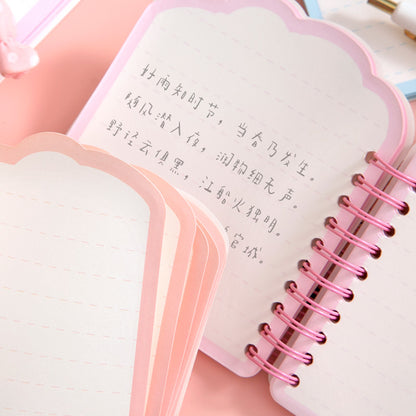 好雨知时节，当春乃发生。
随风潜入夜，润物细无声。
野径云俱黑，江船火独明。
官城。